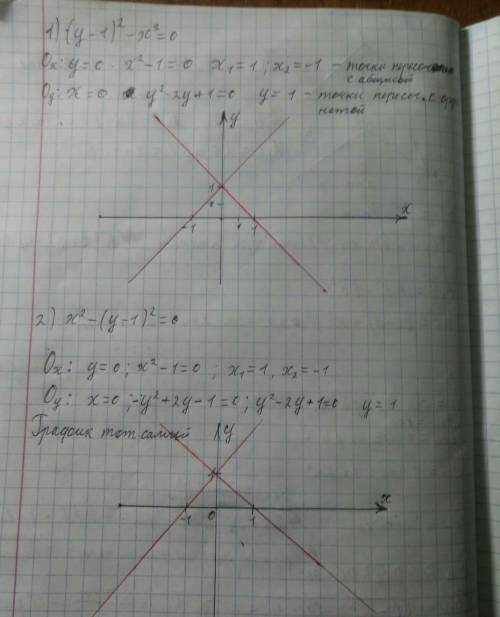 1) (y-1)² - x² = 0
Ox: y=0 · x²-1=0 x₁=1; x₂=-1 - точки пересечения
с абциссой
Oy: x=0 y²-2y+1=0 y=1 - точки пересеч. с орди
натой
y
1
x
-1 1
2) x²-(y-1)²=0
Ox: y=0; x²-1=0; x₁=1, x₂=-1
Oy: x=0; -y²+2y-1=0; y²-2y+1=0 y=1
График тот самый
y
x
-1 0 1